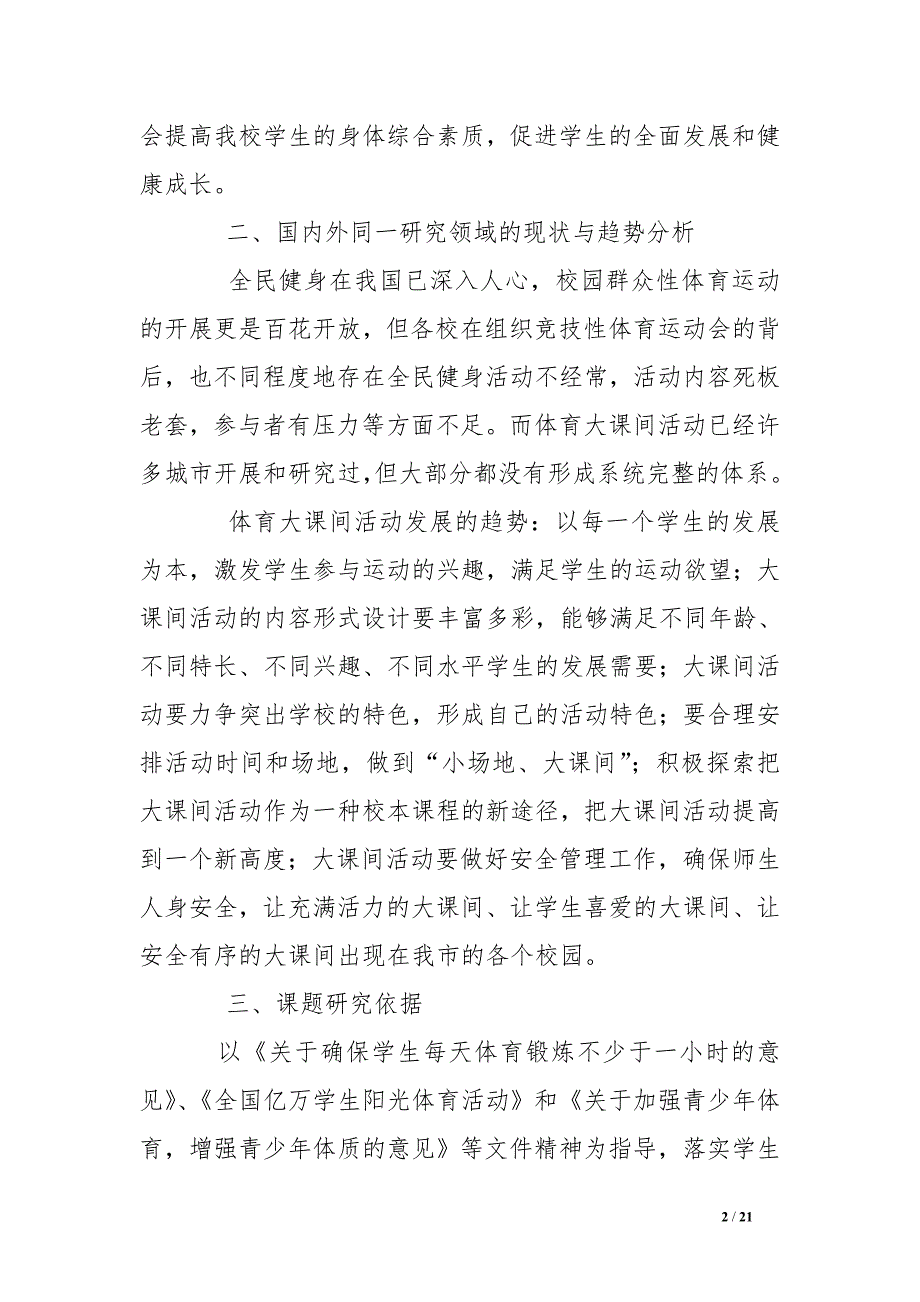 会提高我校学生的身体综合素质，促进学生的全面发展和健
康成长。
二、国内外同一研究领域的现状与趋势分析
全民健身在我国已深入人心，校园群众性体育运动
的开展更是百花开放，但各校在组织竞技性体育运动会的背
后，也不同程度地存在全民健身活动不经常，活动内容死板
老套，参与者有压力等方面不足。而体育大课间活动已经许
多城市开展和研究过，但大部分都没有形成系统完整的体系。
体育大课间活动发展的趋势：以每一个学生的发展
为本，激发学生参与运动的兴趣，满足学生的运动欲望；大
课间活动的内容形式设计要丰富多彩，能够满足不同年龄、
不同特长、不同兴趣、不同水平学生的发展需要；大课间活
动要力争突出学校的特色，形成自己的活动特色；要合理安
排活动时间和场地，做到“小场地、大课间”；积极探索把
大课间活动作为一种校本课程的新途径，把大课间活动提高
到一个新高度；大课间活动要做好安全管理工作，确保师生
人身安全，让充满活力的大课间、让学生喜爱的大课间、让
安全有序的大课间出现在我市的各个校园。
三、课题研究依据
以《关于确保学生每天体育锻炼不少于一小时的意
见》、《全国亿万学生阳光体育活动》和《关于加强青少年体
育，增强青少年体质的意见》等文件精神为指导，落实学生
2 / 21